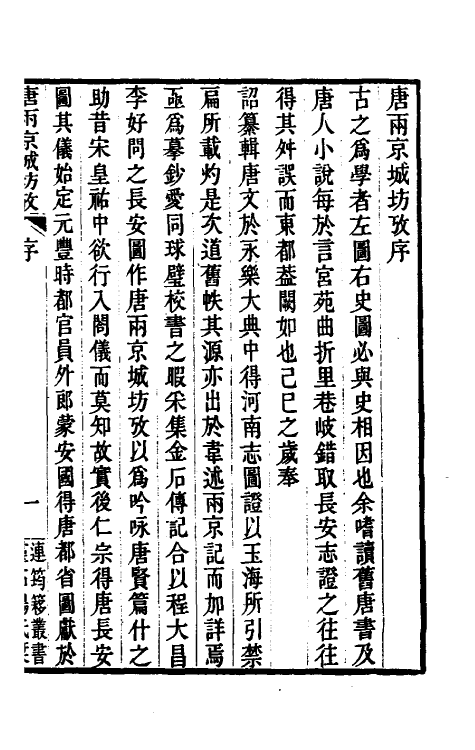 唐兩京城坊攷序
古之爲學者左圖右史圖必與史相因也余嗜讀舊唐書及
唐人小說每於言宮苑曲折里巷岐錯取長安志證之往往
得其舛誤而東都葢闕如也己巳之歲奉
詔纂輯唐文於永樂大典中得河南志圖證以玉海所引禁
扁所載灼是次道舊帙其源亦出於韋述兩京記而加詳焉
亟爲摹鈔愛同球璧校書之暇采集金石傳記合以程大昌
李好問之長安圖作唐兩京城坊攷以爲吟咏唐賢篇什之
助昔宋皇祐中欲行入閤儀而莫知故實後仁宗得唐長安
圖其儀始定元豐時都官員外郎蒙安國得唐都省圖獻於
唐兩京城坊攷 序 一 連筠簃叢書